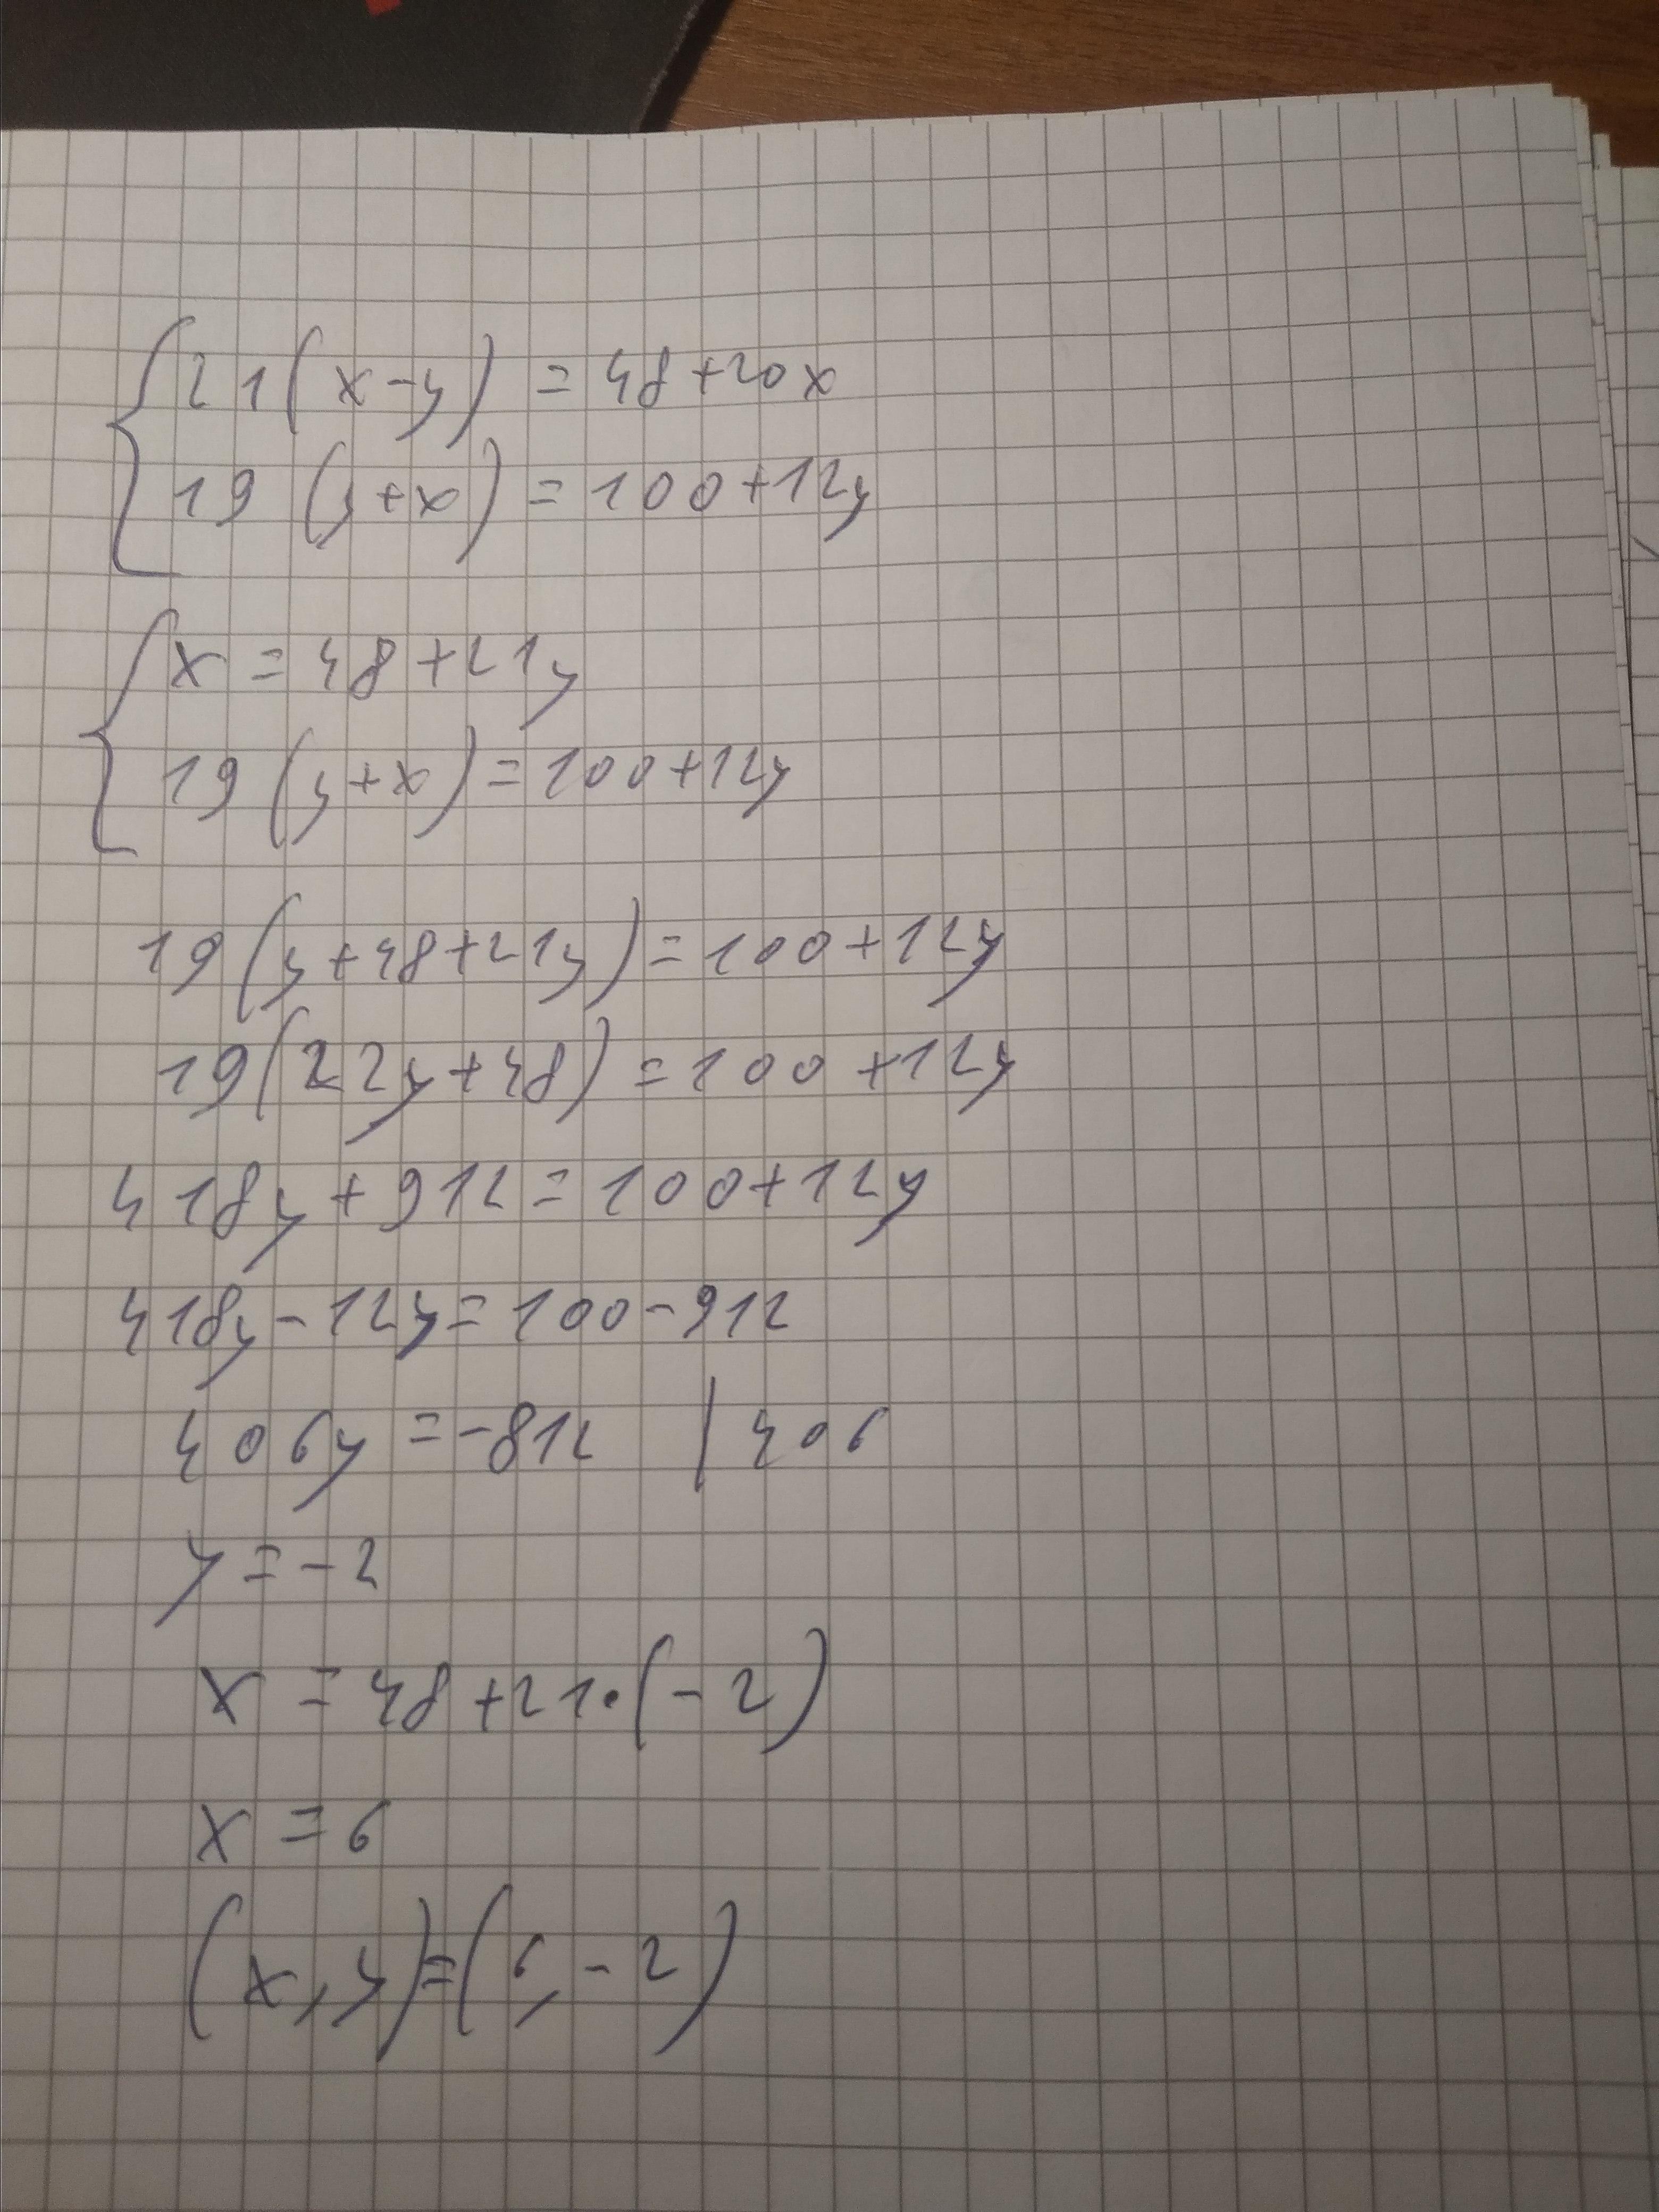 21(x-y) = 48+20x
19(y+x) = 100+12y
x = 48+21y
19(y+x) = 100+12y
19(y+48+21y) = 100+12y
19(22y+48) = 100+12y
418y+912 = 100+12y
418y-12y = 100-912
406y = -812 | 406
y = -2
x = 48+21·(-2)
x = 6
(x,y)=(6,-2)